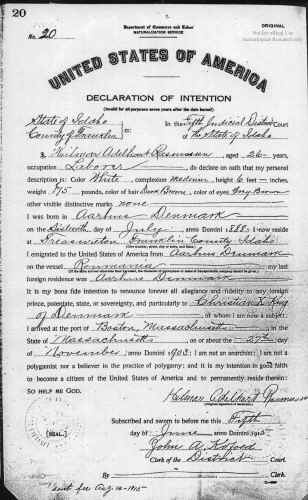 20
ORIGINAL
No. 20
Department of Commerce and Labor
NATURALIZATION SERVICE
UNITED STATES OF AMERICA
DECLARATION OF INTENTION
(Invalid for all purposes seven years after the date hereof)
State of Idaho
In the Fifth Judicial District Court
County of Franklin
ss:
of The State of Idaho
I, Adelbart Rasmussen, aged 26 years,
occupation Laborer, do declare on oath that my personal
description is: Color White, complexion Medium, height 6 feet inches,
weight 175 pounds, color of hair Dark Brown, color of eyes Grey Brown
other visible distinctive marks none
I was born in Aarhus Denmark
on the day of July, anno Domini 1888; I now reside
at Treasureton, Franklin County, Idaho
I emigrated to the United States of America from Aarhus Denmark
on the vessel my last
foreign residence was Aarhus Denmark
It is my bona fide intention to renounce forever all allegiance and fidelity to any foreign
prince, potentate, state, or sovereignty, and particularly to Christian X. King
of Denmark, of whom I am now a subject; I
arrived at the port of Boston, Massachusetts, in the
State of Massachusetts, on or about the 27th day
of November, anno Domini 1903; I am not an anarchist; I am not a
polygamist nor a believer in the practice of polygamy; and it is my intention in good faith
to become a citizen of the United States of America and to permanently reside therein:
SO HELP ME GOD.
Adelbart Rasmussen
(Original signature of declarant)
Subscribed and sworn to before me this Fifth
[SEAL.]
day of June, anno Domini 1915
John A.
Clerk of the District Court.
By , Clerk.
sent for Aug 10-1915